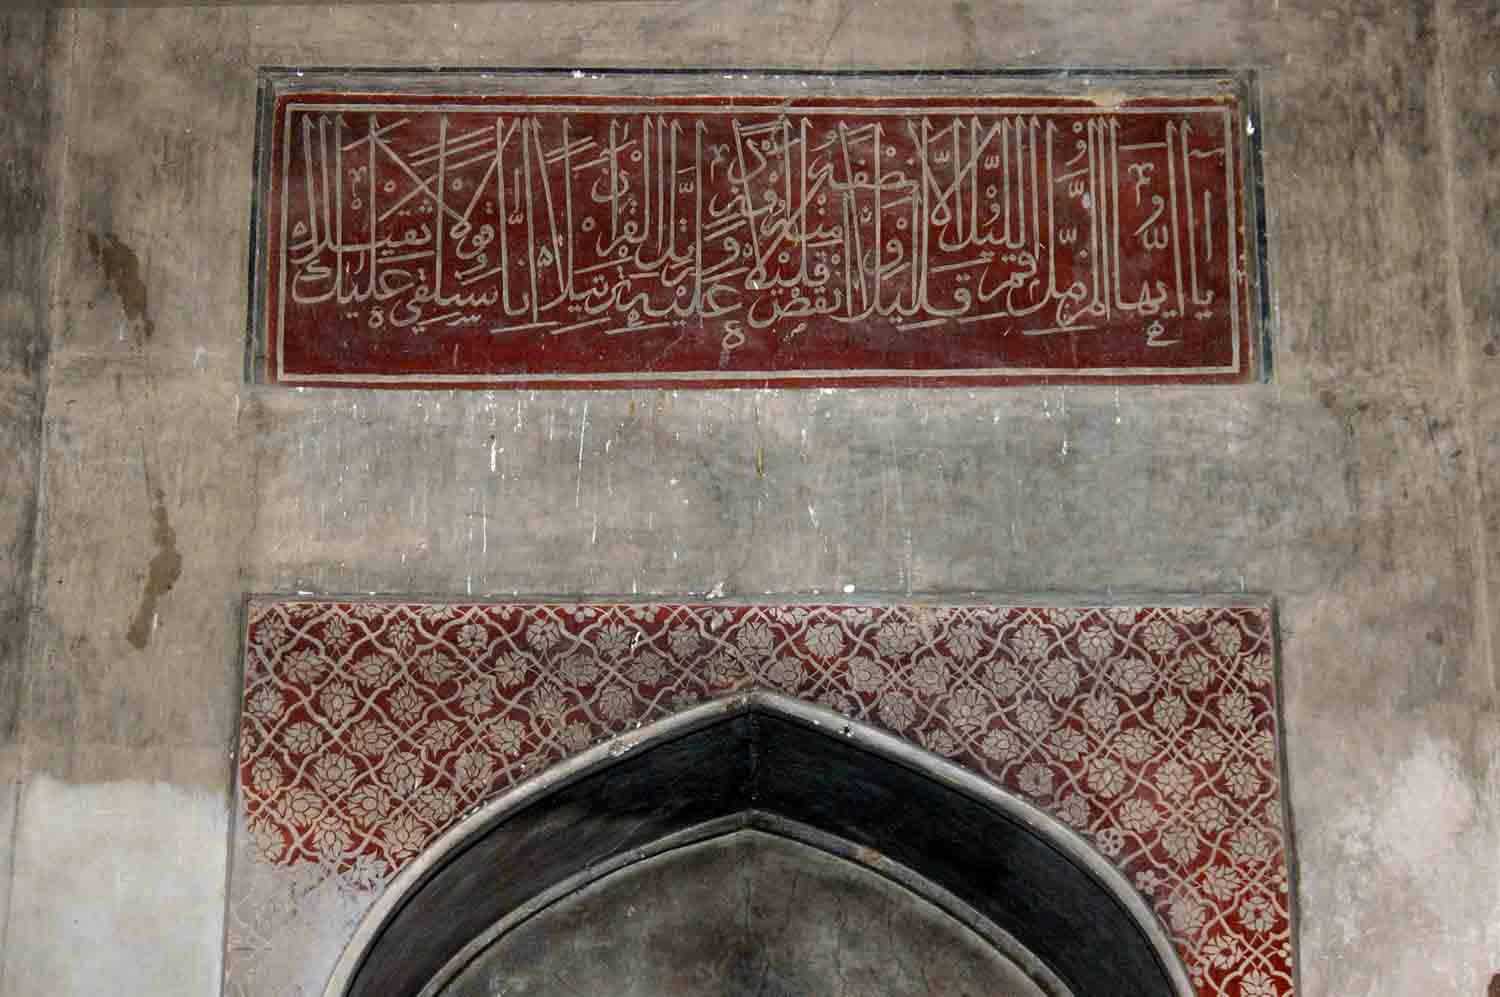 يا ايها المزمل قم اليل الا قليلا نصفه او انقص منه قليلا او زد عليه ورتل القران ترتيلا انا سنلقي عليك قولا ثقيلا